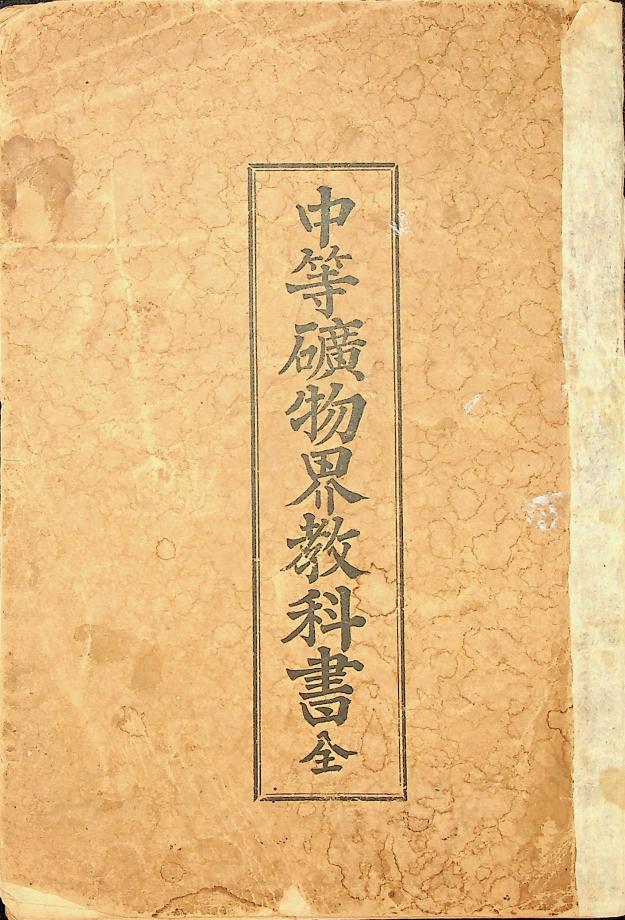 中等礦物界教科書全